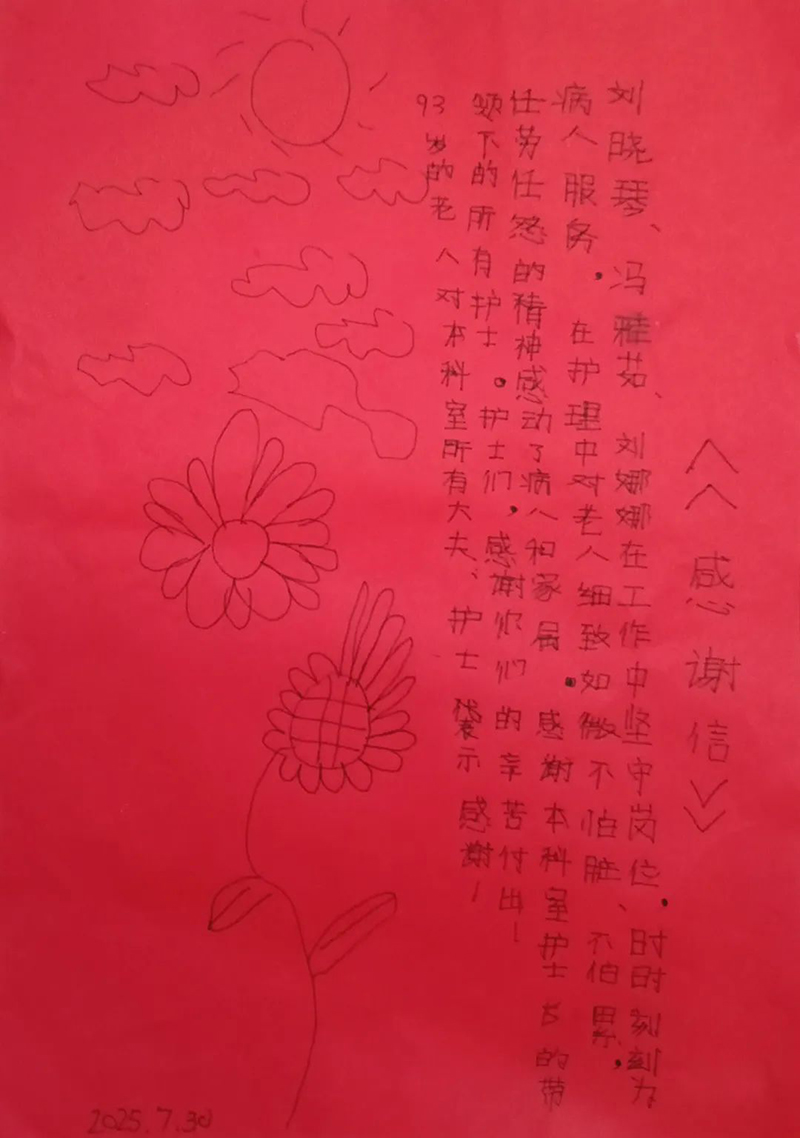 《感谢信》
刘晓琴、冯雅茹、刘娜娜在工作中坚守岗位，时时刻刻为
病人服务，在护理中对老人细致如微不怕脏、不怕累，
任劳任怨的精神感动了病人和家属。感谢本科室护士长的带
领下的所有护士。护士们，感谢你们的辛苦付出！
93岁的老人对本科室所有大夫、护士表示感谢！
2025.7.30